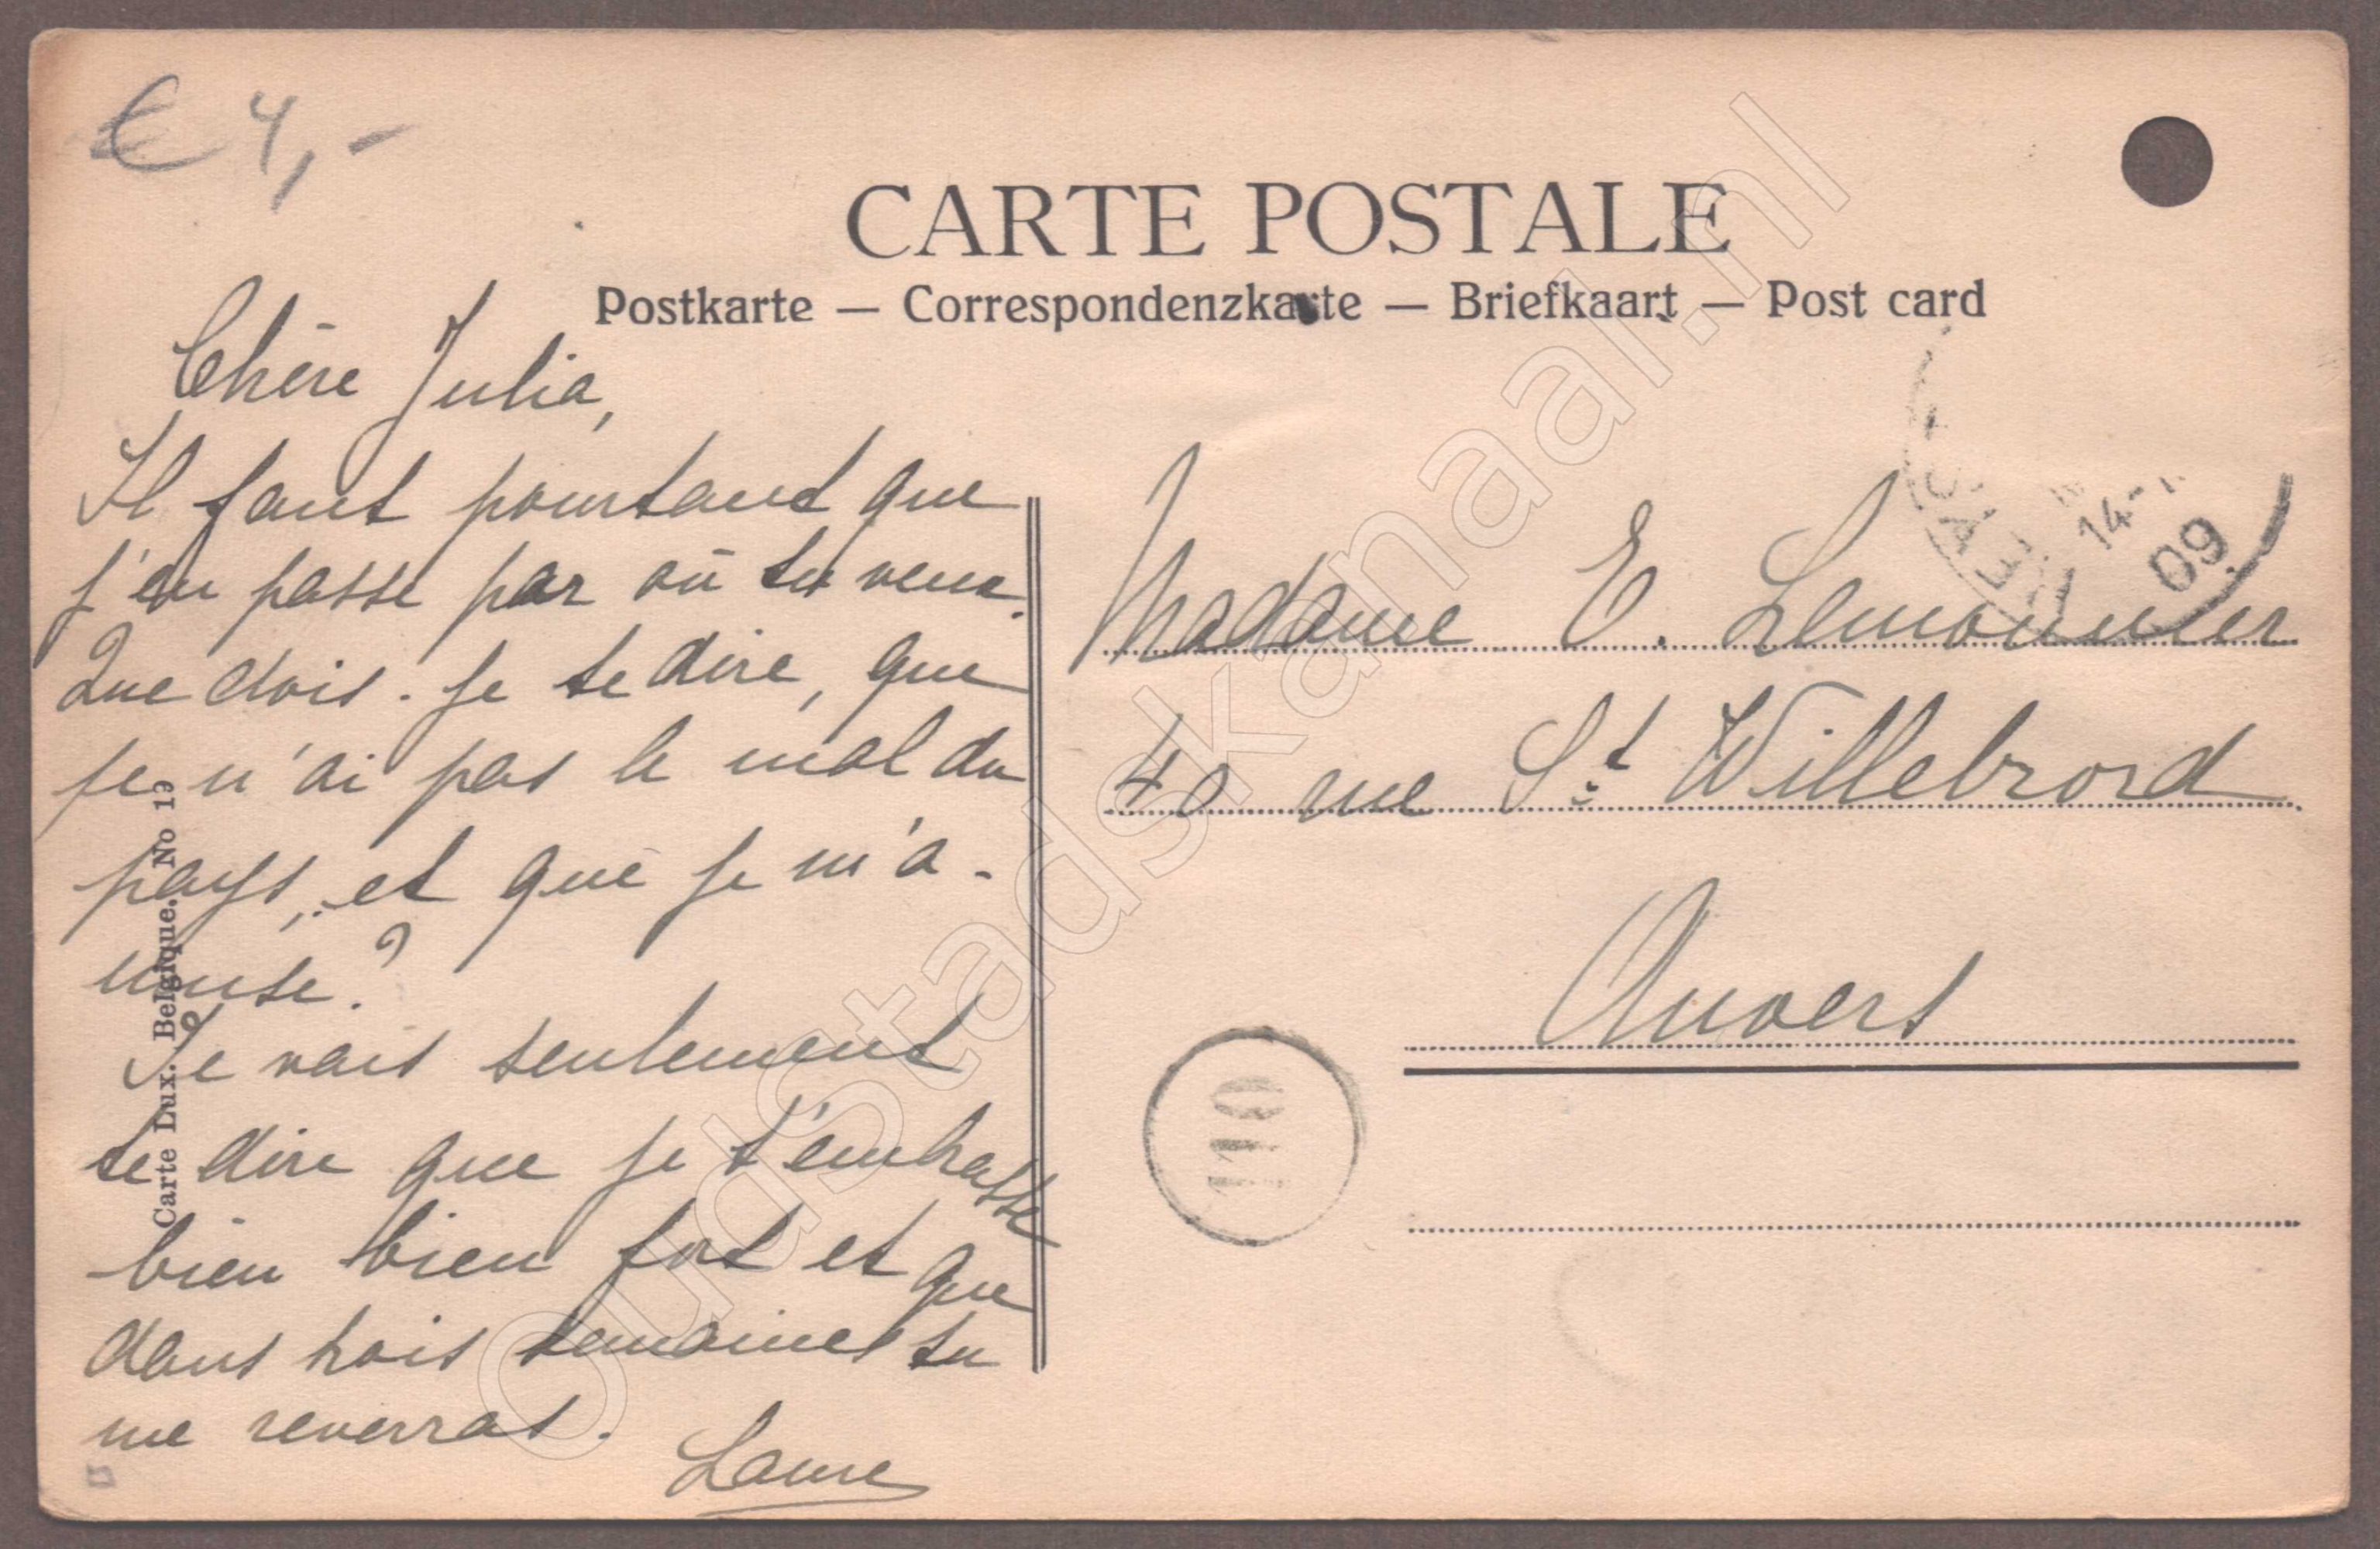 € 4,-
CARTE POSTALE
Postkarte — Correspondenzkarte — Briefkaart — Post card
Chère Julia,
Il faut pourtant que
j'en passe par où tu veux.
Que dois-je te dire, que
je n'ai pas le mal du
pays, et que je m'a-
muse?
Je vais seulement
te dire que je t'embrasse
bien bien fort et que
dans trois semaines tu
me reverras.
Laure
Carte Lux. Belgique. No 19
Madame E. Lemonnier
40 rue St Willebrord
Anvers
14-
09
110
oudstadskanaal.nl